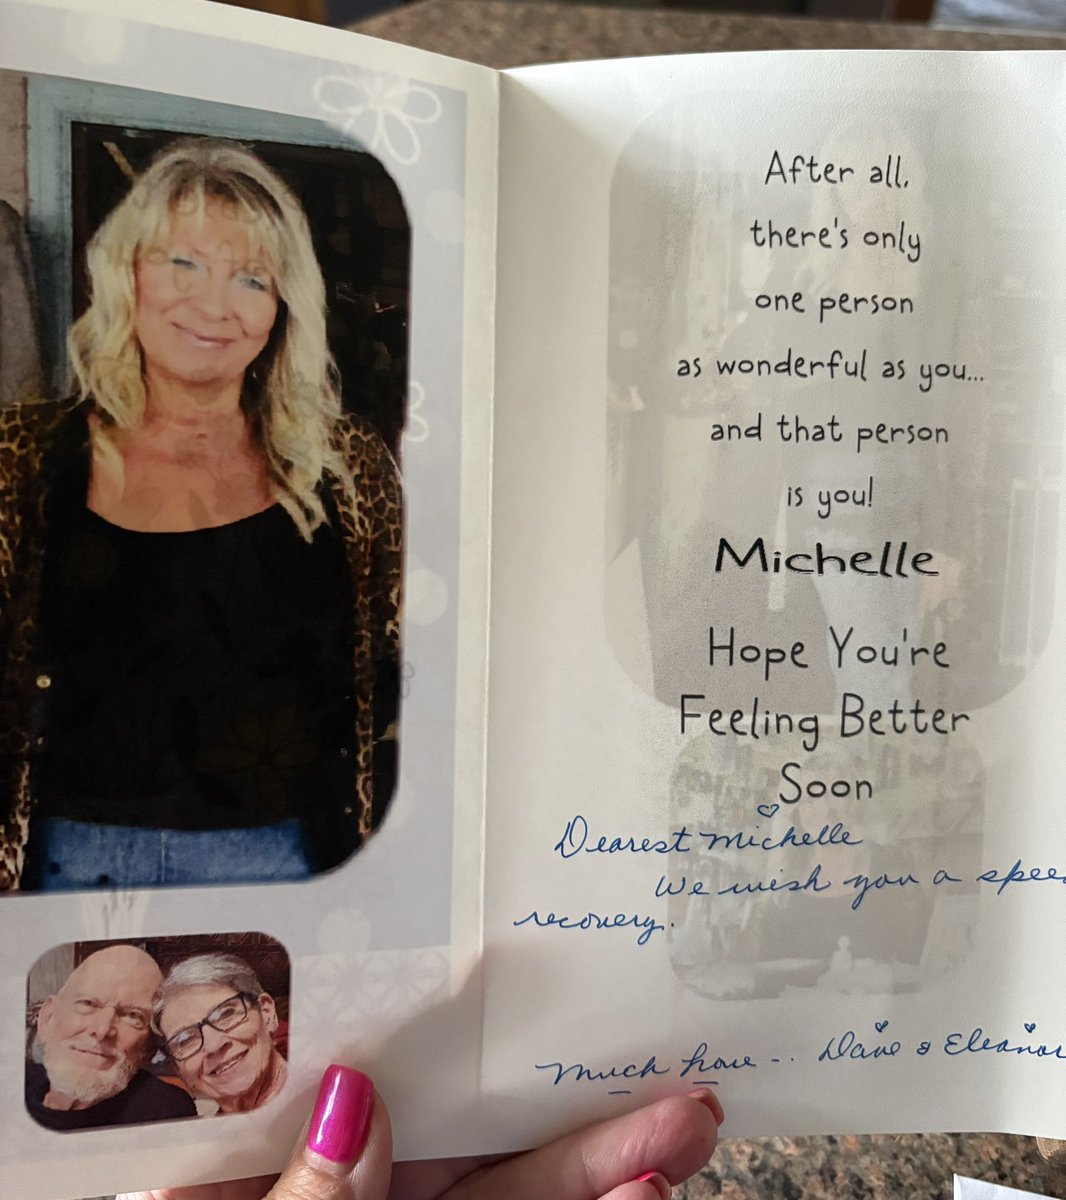 After all,
there's only
one person
as wonderful as you...
and that person
is you!
Michelle
Hope You're
Feeling Better
Soon
Dearest Michelle
We wish you a spee
recovery.
Much love -- Dave & Eleanor